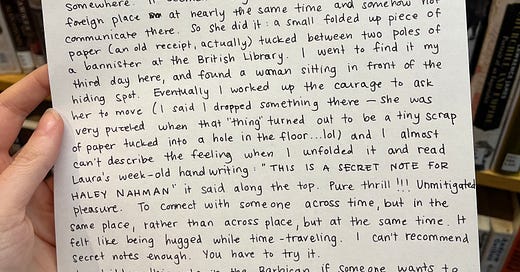 somewhere. It
foreign place at nearly the same time and somehow not
communicate there. So she did it: a small folded up piece of
paper (an old receipt, actually) tucked between two poles of
a bannister at the British Library. I went to find it my
third day here, and found a woman sitting in front of the
hiding spot. Eventually I worked up the courage to ask
her to move (I said I dropped something there — she was
very puzzled when that "thing" turned out to be a tiny scrap
of paper tucked into a hole in the floor...lol) and I almost
can't describe the feeling when I unfolded it and read
Laura's week-old handwriting: "THIS IS A SECRET NOTE FOR
HALEY NAHMAN" it said along the top. Pure thrill!!! Unmitigated
pleasure. To connect with someone across time, but in the
same place, rather than across place, but at the same time. It
felt like being hugged while time-traveling. I can't recommend
secret notes enough. You have to try it.
in the Barbican if someone wants to